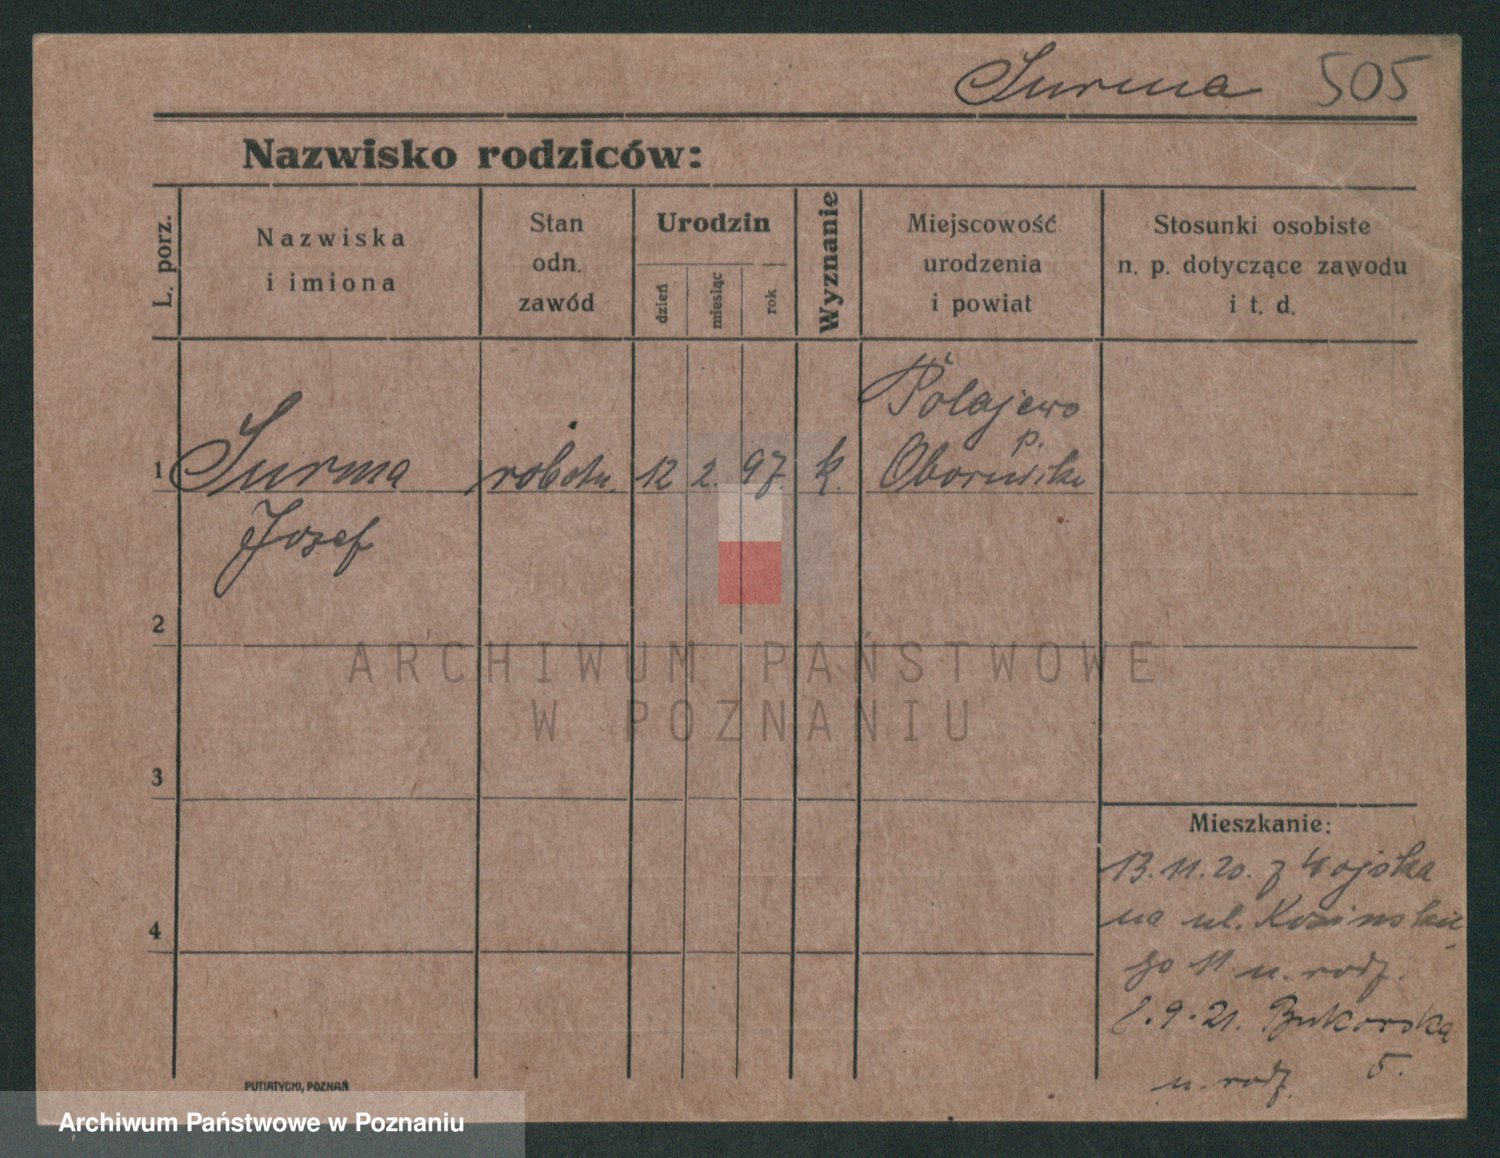 Surma 505
Nazwisko rodziców:
L. porz.
Nazwiska
i imiona
Stan
odn.
zawód
Urodzin
dzień
miesiąc
rok
Wyznanie
Miejscowość
urodzenia
i powiat
Stosunki osobiste
n. p. dotyczące zawodu
i t. d.
1 Surma robotn. 12 2. 97. k. Połajewo
p.
Obornik
Jozef
2
3
4
ARCHIWUM PAŃSTWOWE
W POZNANIU
Mieszkanie:
13.11.20. z Wojska
na ul.
go 11 u. rodz.
8.9.21. Bukowską
5.
u. rodz.
PUTIATYCKI, POZNAŃ
Archiwum Państwowe w Poznaniu